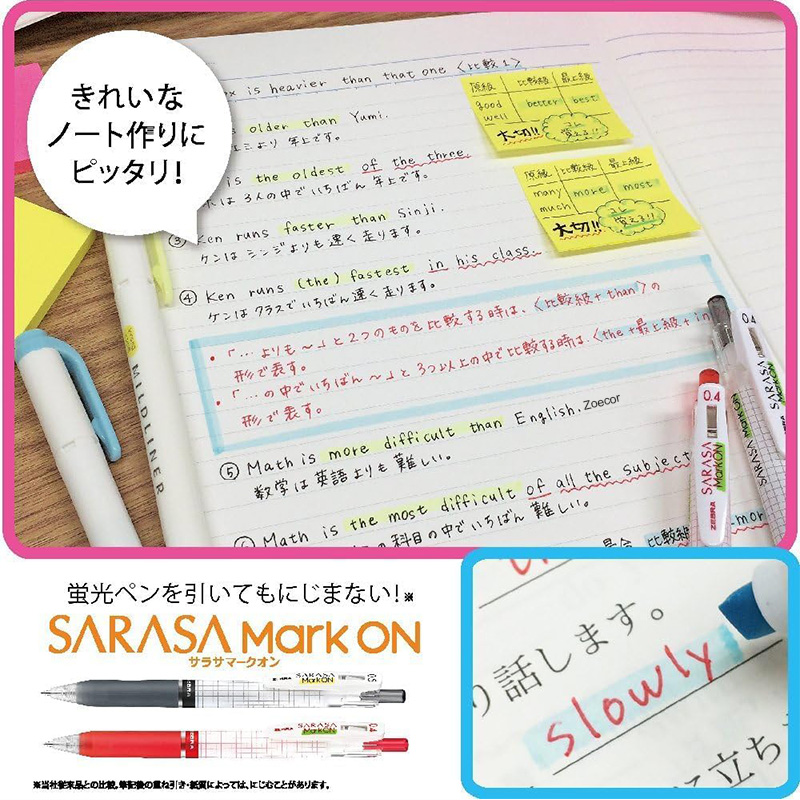 きれいな
ノート作りに
ピッタリ！
is heavier than that one 〈比較1〉
older than Yumi.
より 年上です。
is the oldest of the three.
は3人の中でいちばん 年上です。
③ Ken runs faster than Sinji.
ケンは シンジよりも速く走ります。
④ Ken runs (the) fastest in his class.
ケンは クラスでいちばん速く走ります。
原級 比較級 最上級
good better best
well
大切!!
覚える!!
原級 比較級 最上級
many more most
much
大切!!
覚える!!
・「… よりも～」と2つのものを比較する時は、〈比較級+than〉の
形で表す。
・「…の中でいちばん～」と3つ以上の中で比較する時は、〈the+最上級+in
形で表す。
⑤ Math is more difficult than English. Zoecor
数学は英語よりも 難しい。
Math is the most difficult of all the subject
の科目の中でいちばん 難しい。
比較級
more
MILDLINER
0.4
SARASA
Mark ON
ZEBRA
0.4
SARASA
Mark ON
ZEBRA
蛍光ペンを引いてもにじまない！※
SARASA Mark ON
サラサマークオン
SARASA
Mark ON
0.5
SARASA
Mark ON
0.4
※当社従来品との比較。筆記後の重ね引き・紙質によっては、にじむことがあります。
り話します。
slowly
に立ち